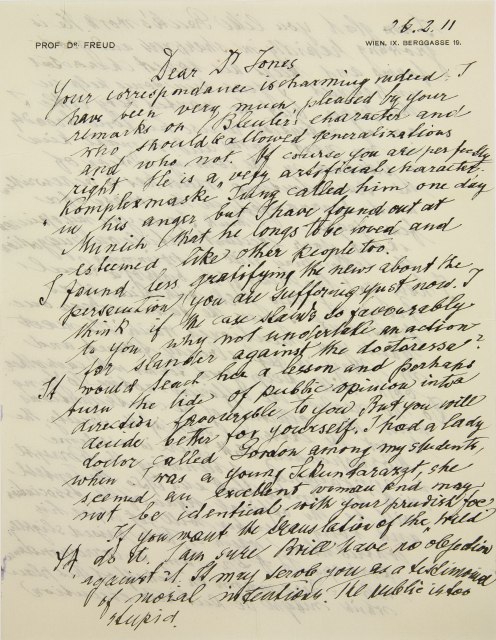 26.2.11
PROF. DR. FREUD
WIEN, IX. BERGGASSE 19.
Dear Dr Jones
Your correspondance is charming indeed. I
have been very much pleased by your
remarks on Bleuler's character and
who should be allowed generalizations
and who not. Of course you are perfectly
right. He is a very artificial character.
"Komplexmaske" Jung called him one day
in his anger but I have found out at
Munich that he longs to be loved and
esteemed like other people too.
I found less gratifying the news about the
persecution, you are suffering just now. I
think if the case stands so favourably
to you, why not undertake an action
for slander against the doctoresse?
It would teach her a lesson and perhaps
turn the tide of public opinion into a
direction favourable to you. But you will
decide better for yourself. I had a lady
doctor called Gordon among my students,
when I was a young Sekundararzt, she
seemed an excellent woman and may
not be identical with your prudish foe.
If you want the translation of the "Wild
do it. I am sure Brill have no objection
against it. It may serve you as a testimony
of moral The public is too
stupid.